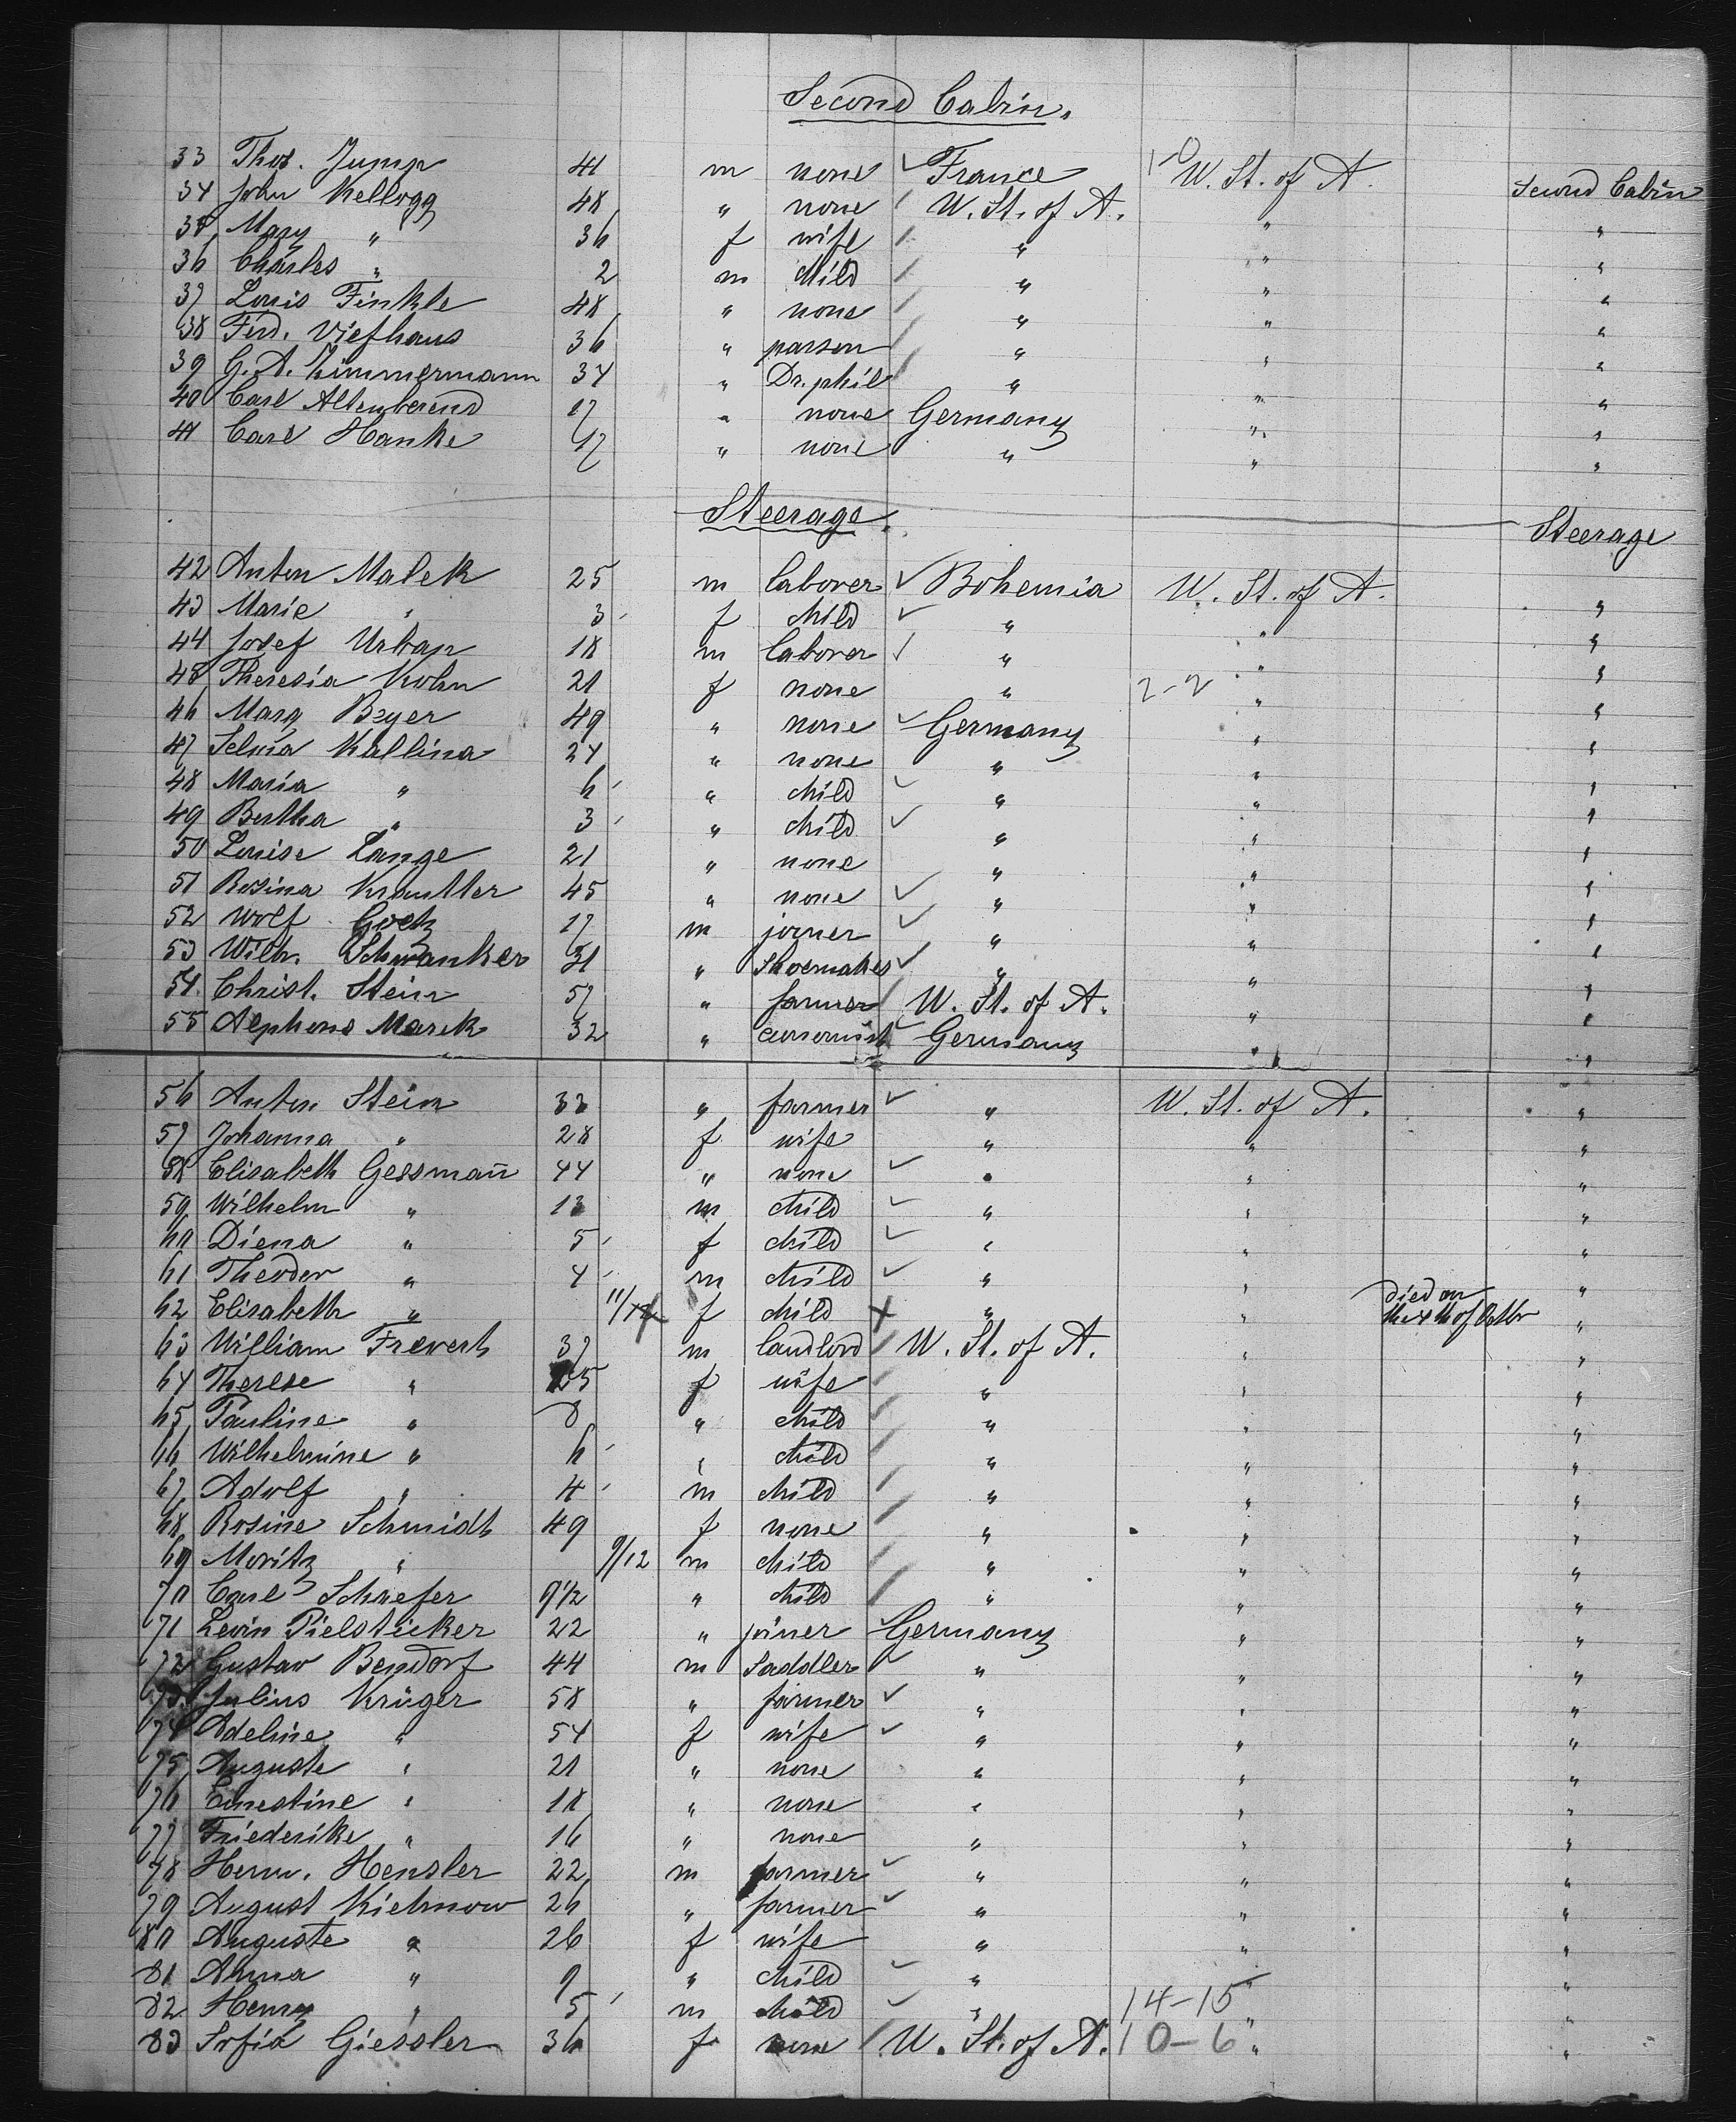 Second Cabin.
33 Thos. Jump 41 m none France W. St. of A. Second Cabin
34 John Kellogg 48 " none W. St. of A. " "
35 Mary " 36 f wife " " "
36 Charles " 2 m child " " "
37 Louis Finkle 48 " none " " "
38 Ferd. Viefhaus 36 " parson " " "
39 G. A. Zimmermann 34 " Dr. phil " " "
40 Carl Altenberend 17 " none Germany " "
41 Carl Hanke 17 " none " " "
Steerage. Steerage
42 Anton Malek 25 m laborer Bohemia W. St. of A. "
43 Marie " 3 f child " " "
44 Josef Urban 18 m laborer " " "
45 Theresia Kohn 21 f none " 2-2 " "
46 Marg Beyer 49 " none Germany " "
47 Kallina 24 " none " " "
48 Maria " 6 " child " " "
49 Bertha " 3 " child " " "
50 Louise Lange 21 " none " " "
51 Rosina Krautter 45 " none " " "
52 Wolf Goetz 17 m joiner " " "
53 Wilh. Schwanker 31 " Shoemaker " " "
54. Christ. Stein 57 " farmer W. St. of A. " "
55 Alphons Marek 32 " Germany " "
56 Anton Stein 33 " farmer " W. St. of A. "
57 Johanna " 28 f wife " " "
58 Elisabeth Gessman̄ 44 " none " " "
59 Wilhelm " 13 m child " " "
60 Diena " 5 f child " " "
61 Theodor " 4 m child " " "
62 Elisabeth " 11/12 f child " " died on the 4th of Octbr "
63 William Frevert 37 m landlord W. St. of A. " "
64 Therese " 25 f wife " " "
65 Pauline " 8 " child " " "
66 Wilhelmine " 6 " child " " "
67 Adolf " 4 m child " " "
68 Rosine Schmidt 49 f none " " "
69 Moritz " 9/12 m child " " "
70 Carl Schaefer 9½ " child " " "
71 Levin Pielsticker 22 " joiner Germany " "
72 Gustav Bendorf 44 m Saddler " " "
73 Julius Krüger 58 " farmer " " "
74 Adeline " 54 f wife " " "
75 Auguste " 21 " none " " "
76 Ernestine " 18 " none " " "
77 Friederike " 16 " none " " "
78 Herm. Hensler 22 m farmer " " "
79 August Kiehnow 26 " farmer " " "
80 Auguste " 26 f wife " " "
81 Anna " 9 " child " " "
82 Henry " 5 m child " 14-15 " "
83 Sofia Giessler 36 f none W. St. of A. 10-6 " "